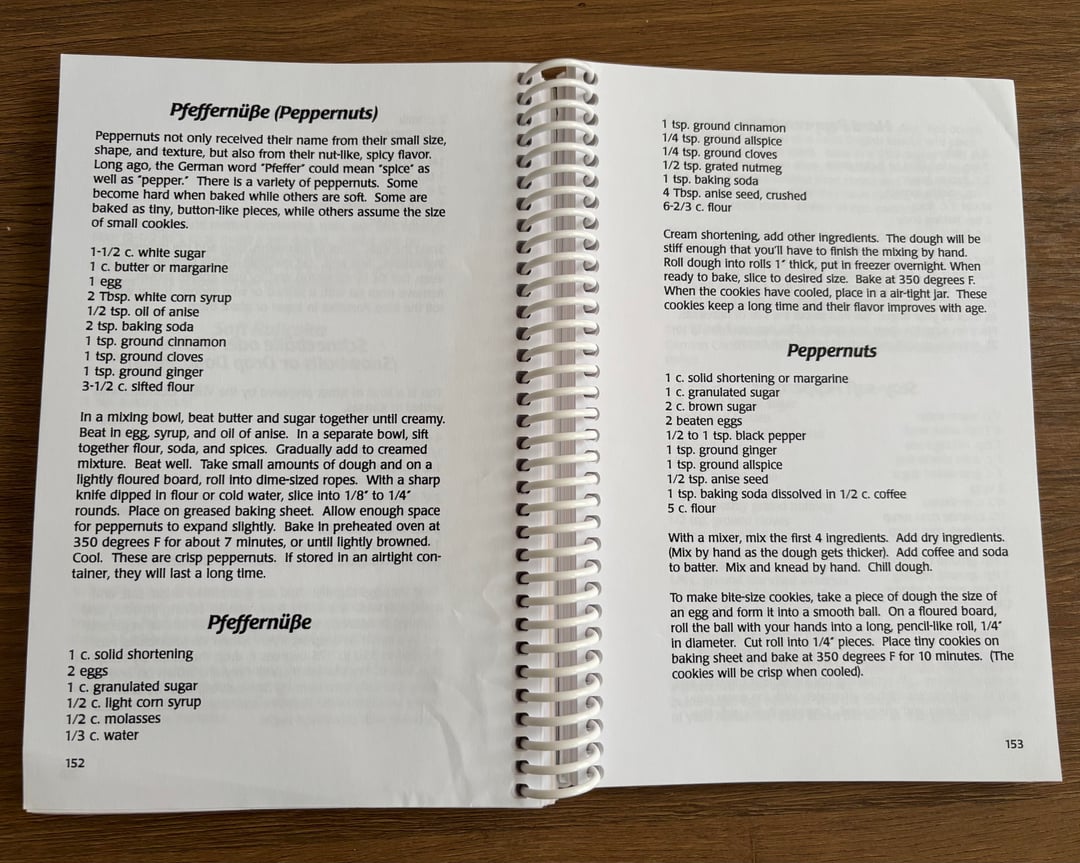 Pfeffernüße (Peppernuts)
Peppernuts not only received their name from their small size,
shape, and texture, but also from their nut-like, spicy flavor.
Long ago, the German word "Pfeffer" could mean "spice" as
well as "pepper." There is a variety of peppernuts. Some
become hard when baked while others are soft. Some are
baked as tiny, button-like pieces, while others assume the size
of small cookies.
1-1/2 c. white sugar
1 c. butter or margarine
1 egg
2 Tbsp. white corn syrup
1/2 tsp. oil of anise
2 tsp. baking soda
1 tsp. ground cinnamon
1 tsp. ground cloves
1 tsp. ground ginger
3-1/2 c. sifted flour
In a mixing bowl, beat butter and sugar together until creamy.
Beat in egg, syrup, and oil of anise. In a separate bowl, sift
together flour, soda, and spices. Gradually add to creamed
mixture. Beat well. Take small amounts of dough and on a
lightly floured board, roll into dime-sized ropes. With a sharp
knife dipped in flour or cold water, slice into 1/8" to 1/4"
rounds. Place on greased baking sheet. Allow enough space
for peppernuts to expand slightly. Bake in preheated oven at
350 degrees F for about 7 minutes, or until lightly browned.
Cool. These are crisp peppernuts. If stored in an airtight con-
tainer, they will last a long time.
Pfeffernüße
1 c. solid shortening
2 eggs
1 c. granulated sugar
1/2 c. light corn syrup
1/2 c. molasses
1/3 c. water
152
1 tsp. ground cinnamon
1/4 tsp. ground allspice
1/4 tsp. ground cloves
1/2 tsp. grated nutmeg
1 tsp. baking soda
4 Tbsp. anise seed, crushed
6-2/3 c. flour
Cream shortening, add other ingredients. The dough will be
stiff enough that you'll have to finish the mixing by hand.
Roll dough into rolls 1" thick, put in freezer overnight. When
ready to bake, slice to desired size. Bake at 350 degrees F.
When the cookies have cooled, place in a air-tight jar. These
cookies keep a long time and their flavor improves with age.
Peppernuts
1 c. solid shortening or margarine
1 c. granulated sugar
2 c. brown sugar
2 beaten eggs
1/2 to 1 tsp. black pepper
1 tsp. ground ginger
1 tsp. ground allspice
1/2 tsp. anise seed
1 tsp. baking soda dissolved in 1/2 c. coffee
5 c. flour
With a mixer, mix the first 4 ingredients. Add dry ingredients.
(Mix by hand as the dough gets thicker). Add coffee and soda
to batter. Mix and knead by hand. Chill dough.
To make bite-size cookies, take a piece of dough the size of
an egg and form it into a smooth ball. On a floured board,
roll the ball with your hands into a long, pencil-like roll, 1/4"
in diameter. Cut roll into 1/4" pieces. Place tiny cookies on
baking sheet and bake at 350 degrees F for 10 minutes. (The
cookies will be crisp when cooled).
153